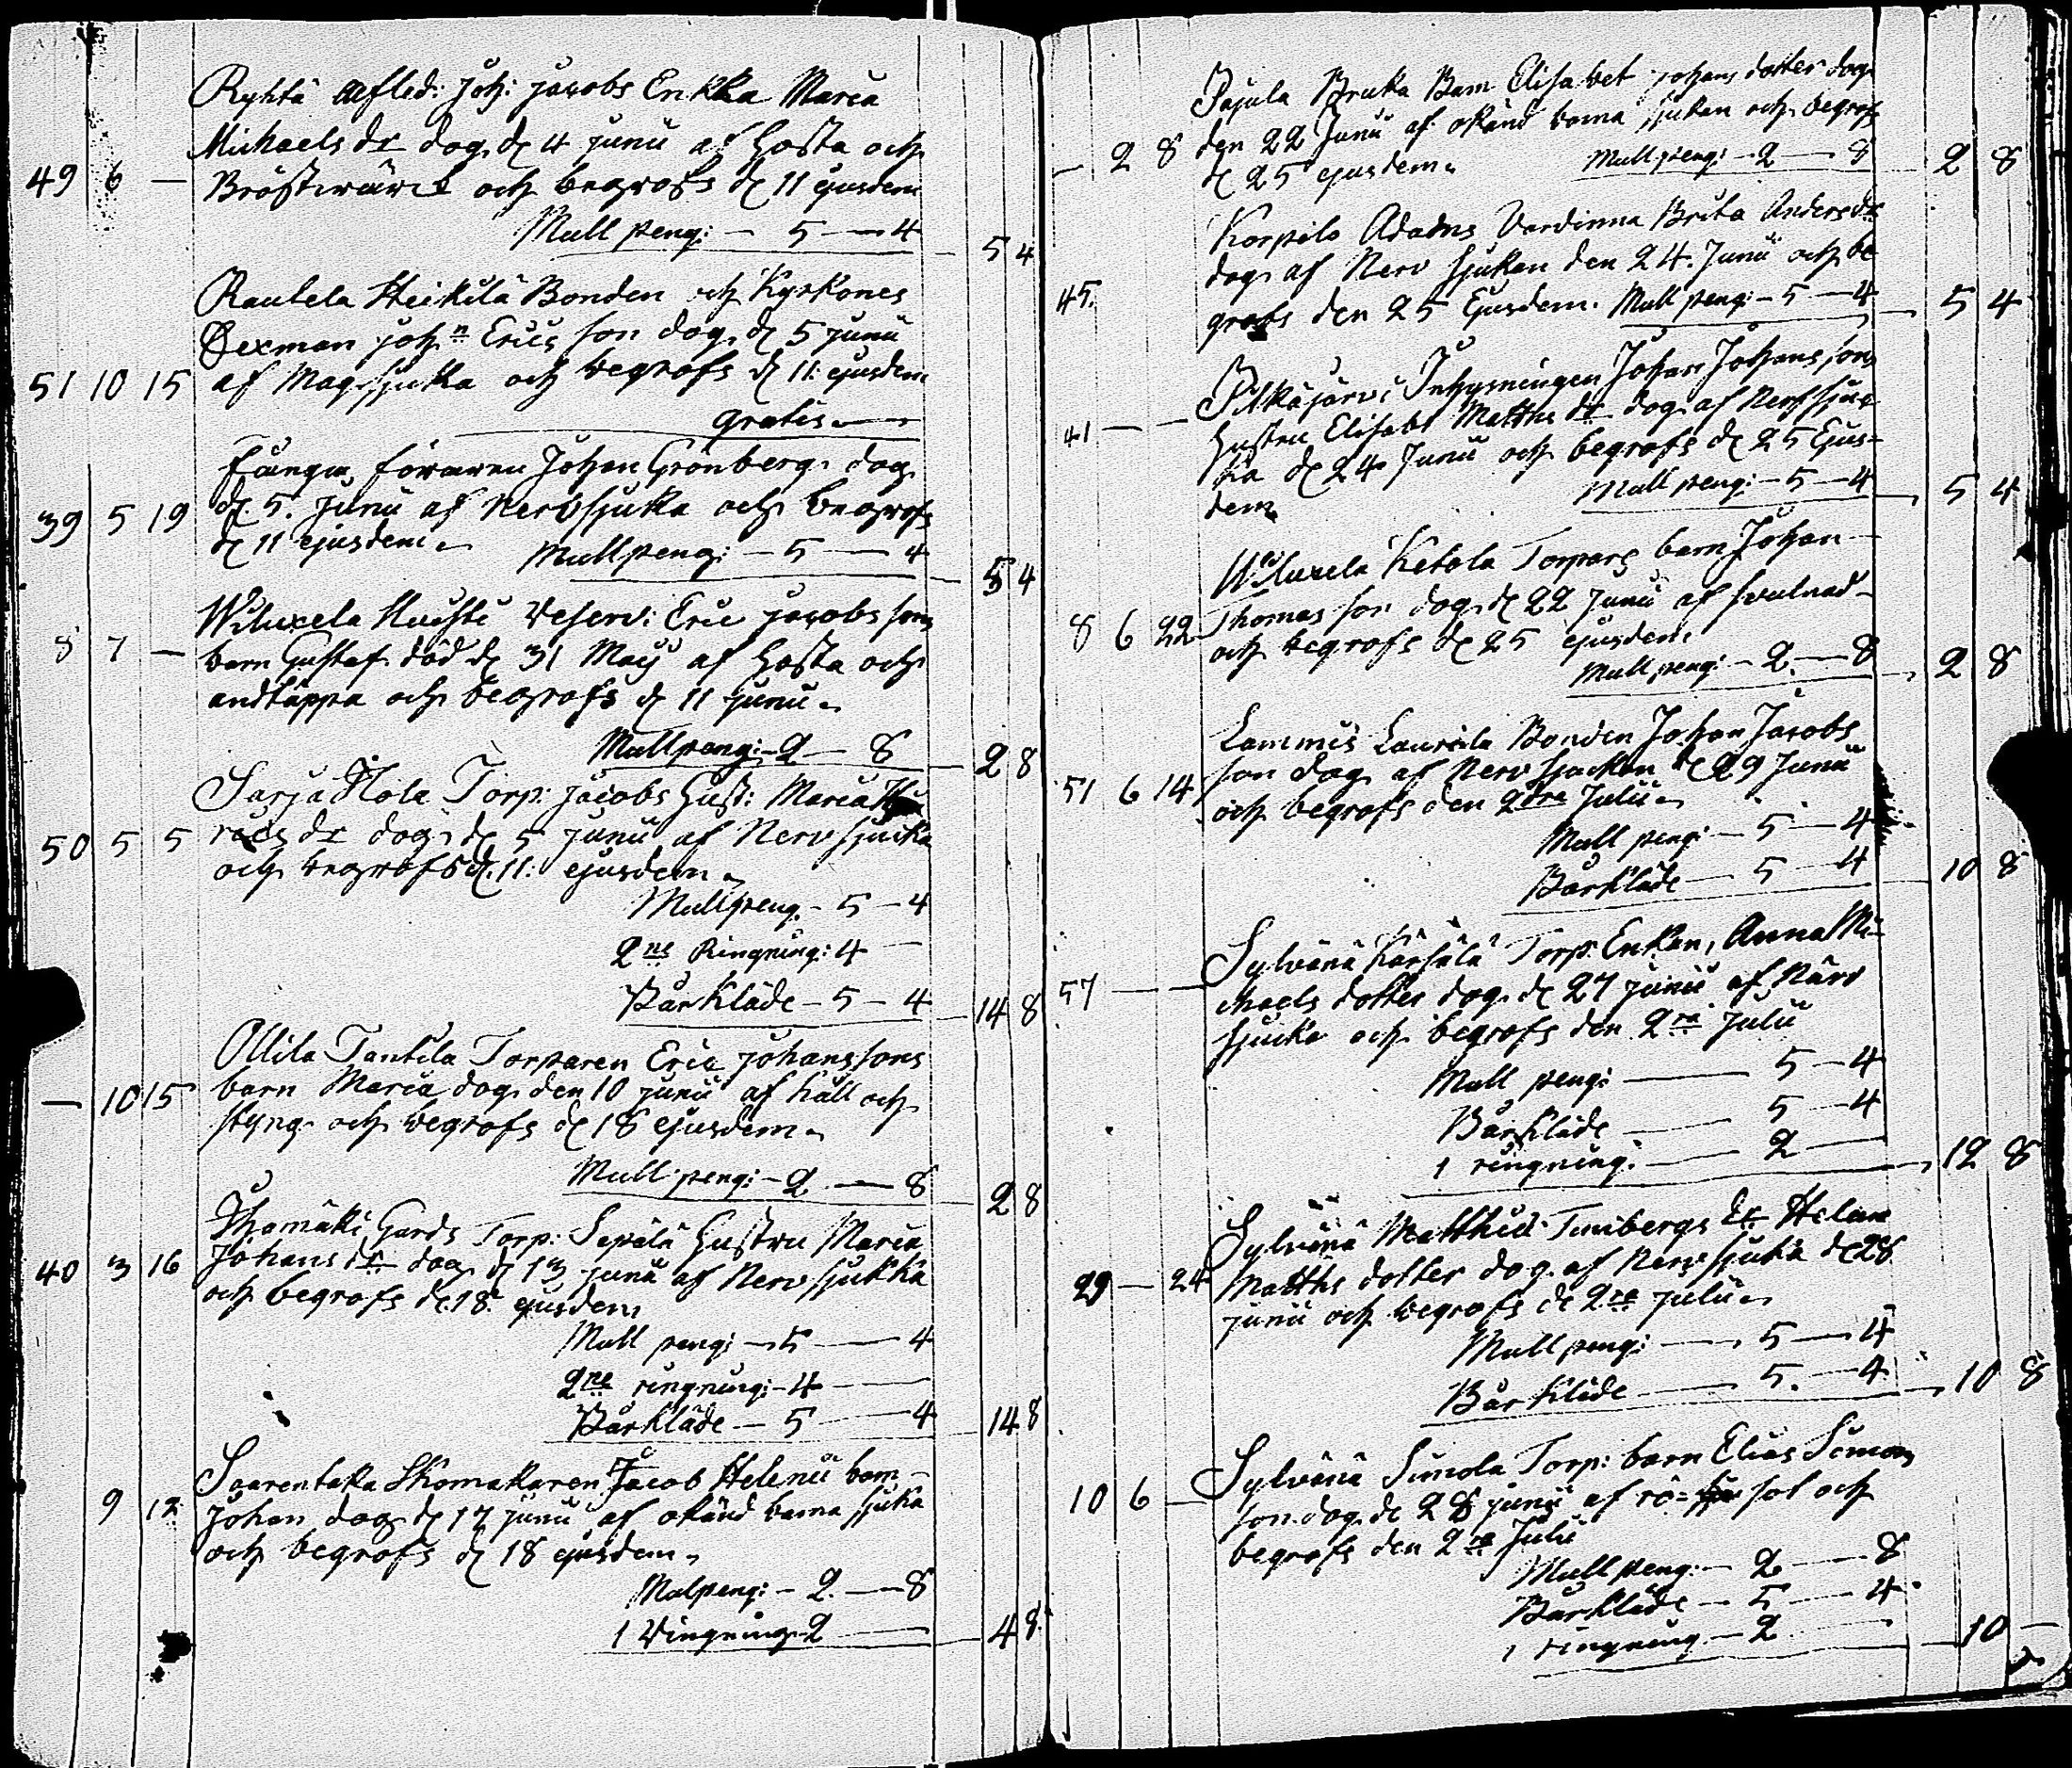 Ryhtä Afled: Joh: Jacobs Enkka Maria
Michaels dr dog d 4 Junii af Hosta och
49 6 — Bröstwärck och begrofs d 11 ejusdem
Mull peng: — 5 — 4
5 4
Rautela Heikilä Bonden och Kyrkones
Sexman Joh n Erics son dog d 5 Junii
51 10 15 af Magsjuka och begrofs d 11: ejusdem
gratis
Johan Grönberg dog
39 5 19 d 5. Junii af Nervsjuka och begrofs
d 11 ejusdem Mullpeng: — 5 — 4
5 4
Wiluxela Huchti Reserv: Eric Jacobs sons
8 7 — barn Gustaf död d 31 Maij af Hosta och
andtäppa och begrofs d 11 Junii
Mullpeng: — 2 — 8
2 8
Sarja Torp: Jacobs Hust: Maria
50 5 5 dr dog d 5 Junii af Nervsjucka
och begrofs d. 11: ejusdem
Mullpeng. — 5 — 4
2ne Ringning: 4 —
Bårkläde — 5 — 4
14 8
Ollila Tantila Torparen Eric Johanssons
— 10 15 barn Maria dog den 10 Junii af håll och
styng och begrofs d 18 ejusdem
Mull peng: — 2 — 8
2 8
Gårds Torp: Sepälä Hustru Maria
40 3 16 Johans dr dog d 13 Junii af Nervsjukka
och begrofs d. 18. ejusdem
Mull peng: — 5 — 4
2ne ringning: — 4 —
Bårkläde — 5 — 4
14 8
Saarentaka Skomakaren Jacob Helenii barn
9 12 Johan dog d 17 Junii af okänd barna sjuka
och begrofs d 18 ejusdem
Mulpeng: — 2 — 8
1 Ringning 2 —
4 8
Pajula Bruka Barn Elisabet Johans dotter dog
— 2 8 den 22 Junii af okänd barna sjukan och begrof
d 25 ejusdem Mullpeng: — 2 — 8
2 8
Korpilo Adams Värdinna Brita Anders dr
45. dog af Nerv sjukan den 24. Junii och be
grofs den 25 Ejusdem. Mull peng: — 5 — 4
5 4
Pitkäjärvi Inhysningen Johan Johanssons
41 — Hustru Elisabt Matths dr dog af Nerfsjuc
ka d 24 Junii och begrofs d 25 Ejus-
dem Mull peng: — 5 — 4
5 4
Wiluxela Ketola Torpars barn Johan
8 6 22 Thomas son dog d 22 Junii af svulnad
och begrofs d 25 ejusdem
Mull peng: — 2. — 8
2 8
Lammis Laurila Bonden Johan Jacobs
51 6 14 son dog af Nerv sjuckan d 29 Junii
och begrofs den 2dra Julii
Mull peng: — 5 — 4
Bårkläde — 5 — 4
10 8
Sylvänä Torp. Enkan, Anna Mi-
57 — chaels dotter dog d 27 Junii af Närv
sjucka och begrofs den 2ra Julii
Mull peng: — 5 — 4
Bårkläde — 5 — 4
1 ringning: — 2 —
12 8
Sylvänä Matthis Tunbergs Helena
29 — 24 Matths dotter dog af Nervsjuka d 28
Junii och begrofs d 2ra Julii
Mull peng: — 5 — 4
Bårkläde — 5. — 4
10 8
Sylvänä Simola Torp: barn Elias Simons
10 6 — son dog d 28 Junii af rö- sot och
begrofs den 2ra Julii
Mull peng: — 2 — 8
Bårkläde — 5 — 4
1 ringning — 2
10 —